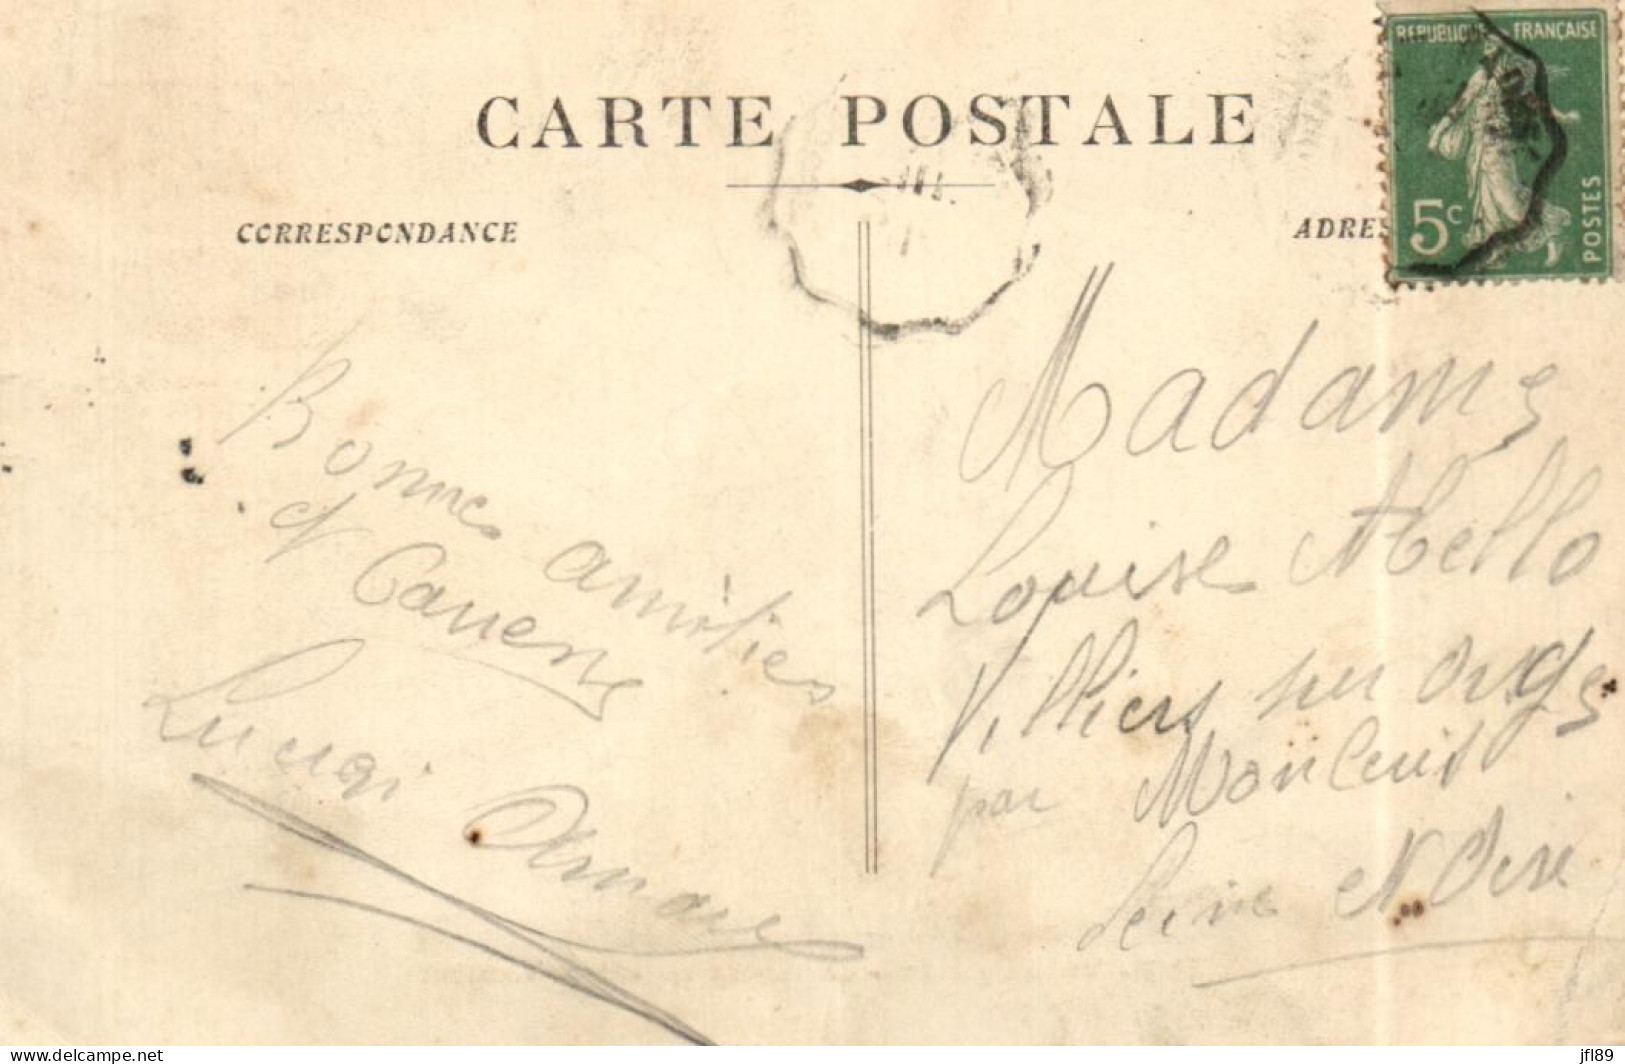 REPUBLIQUE FRANÇAISE
5c
POSTES
CARTE POSTALE
CORRESPONDANCE
ADRES
Bonnes amitiés
et
Luigi
Madame
Louise Abello
Villiers sur Orge
par Montleris
Seine et Oise
delcampe.net
jfl89